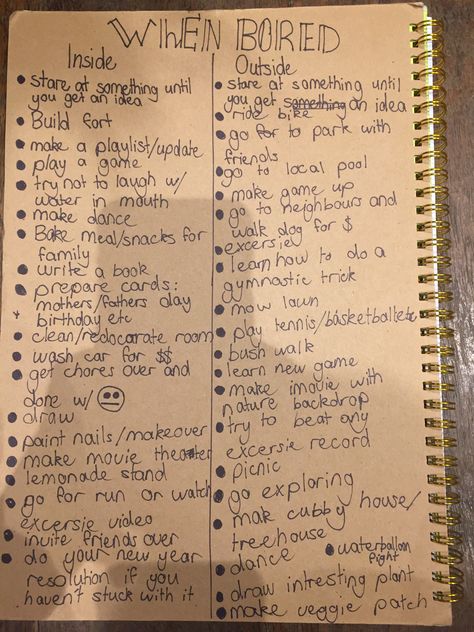 WHEN BORED
Inside
• stare at something until
you get an idea
• Build fort
• make a playlist/update
• play a game
• try not to laugh w/
water in mouth
• make dance
• Bake meal/snacks for
family
• write a book
• prepare cards:
mothers/fathers day
birthday etc
• clean/redocarrate room
• wash car for $$
• get chores over and
done w/
• draw
• paint nails/makeover
• make movie theater
• lemonade stand
• go for run or watch
excersie video
• invite friends over
• do your new year
resolution if you
haven't stuck with it
Outside
• stare at something until
you get something an idea
• ride bike
• go for to park with
friends
• go to local pool
• make game up
• go to neighbours and
walk dog for $
• excersie
• learn how to do a
gymnastic trick
• mow lawn
• play tennis/basketball etc
• bush walk
• learn new game
• make imovie with
nature backdrop
• try to beat any
excersie record
• picnic
• go exploring
• make cubby house/
treehouse
• dance • waterballoon
fight
• draw intresting plant
• make veggie patch